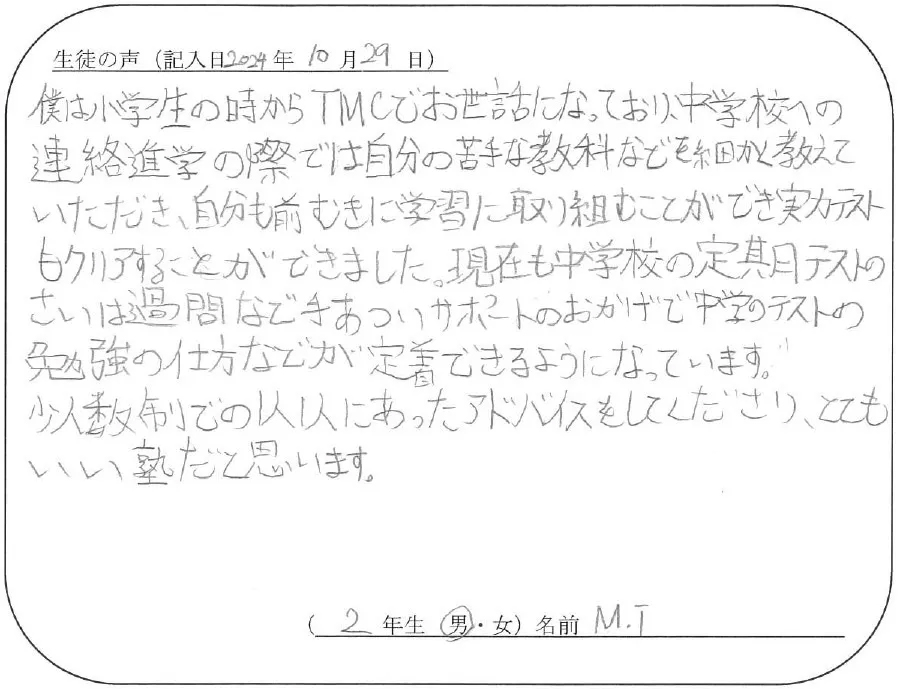 生徒の声（記入日2024年10月29日）
僕は小学生の時からTMCでお世話になっており、中学校への
連絡進学の際では自分の苦手な教科などを細かく教えて
いただき、自分も前むきに学習に取り組むことができ実力テスト
もクリアすることができました。現在も中学校の定期テストの
さいは過問など手あついサポートのおかげで中学のテストの
勉強の仕方などが定着できるようになっています。
少人数制での1人1人にあったアドバイスをしてくださり、とても
いい塾だと思います。
（2年生 男・女）名前 M.T